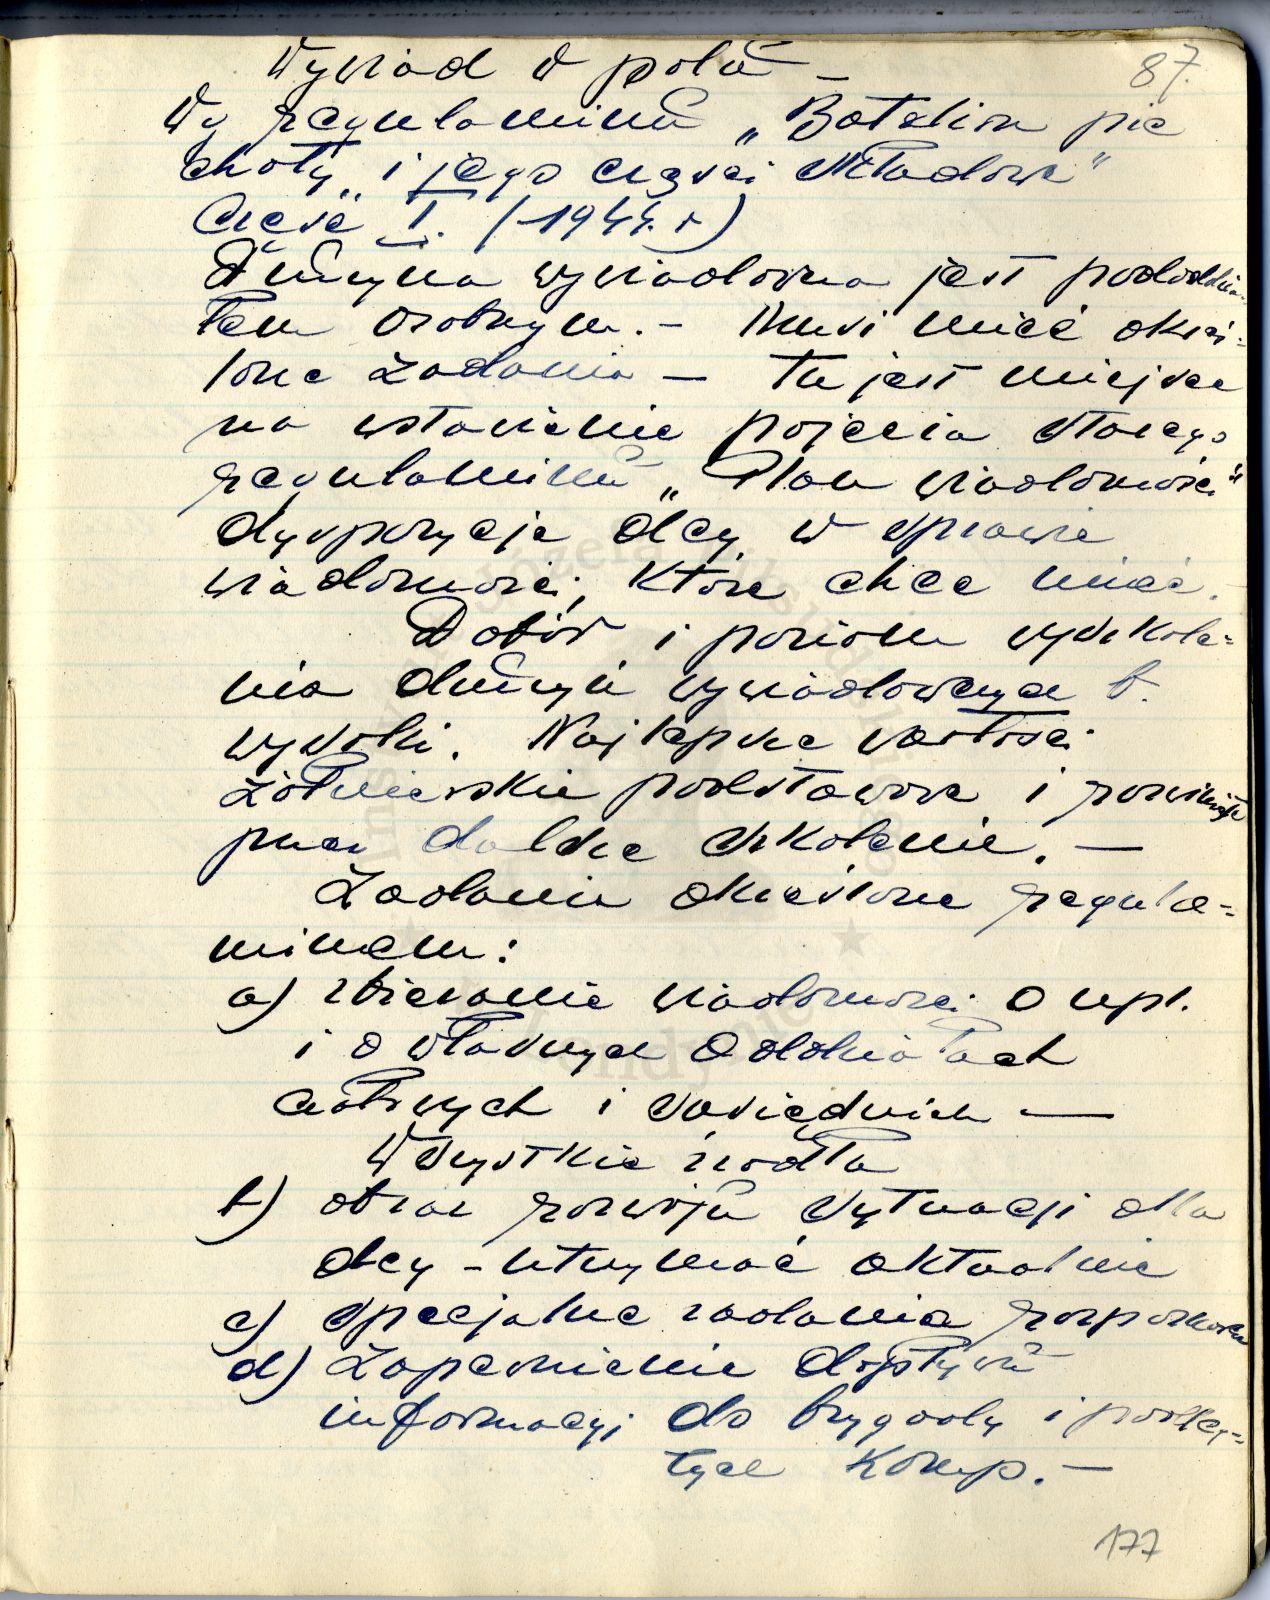 87.
Wywiad w polu –
Wg regulaminu „Batalion pie
choty „i jego części składowe"
Część I. (1944. r)
Drużyna wywiadowcza jest pododdzia-
łem osobnym. – Musi mieć okreś-
lone zadania – Tu jest miejsce
na wstawienie pojęcia starego
regulaminu „Plan wiadomości"
dyspozycje dcy w sprawie
wiadomości, które chce mieć.
Dobór i poziom wyszkole=
nia drużyn wywiadowczych b.
wysoki. Najlepsze wartości
żołnierskie podstawowe i rozwinięte
przez dalsze szkolenie. —
Zadania określone regula=
minem:
a) zbieranie wiadomości o npl.
i o własnych oddziałach
czołowych i sąsiednich —
Wszystkie źródła
b) obraz rozwoju sytuacji dla
dcy – utrzymać aktualnie
c) specjalne zadania rozpoznawcze
d) Zapewnienie dopływu
informacyj do brygady i podleg=
łych komp. –
177
Instytut Józefa Piłsudskiego ★ w Londynie ★